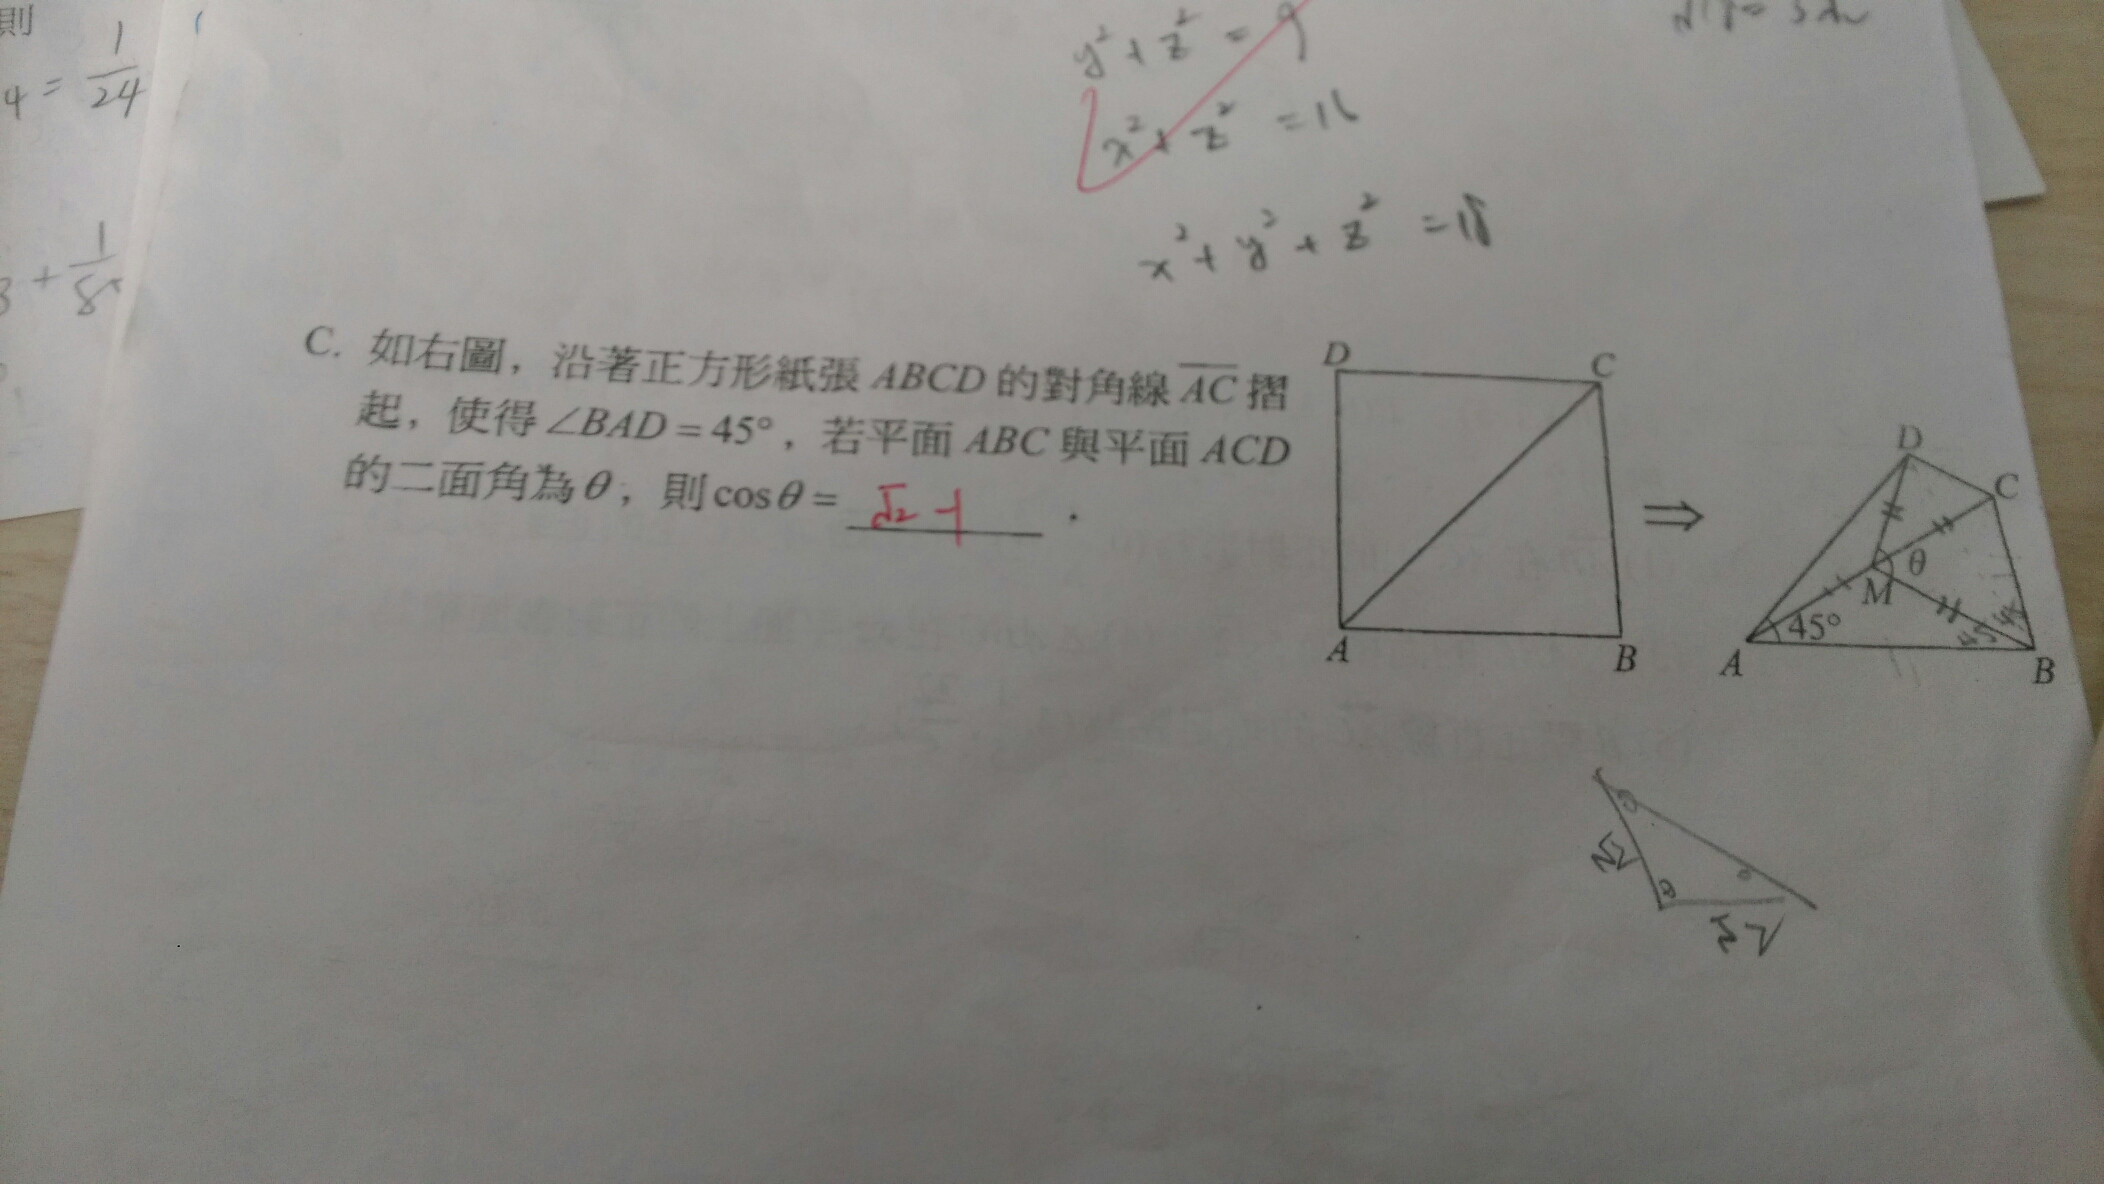 則
4 = 1/24
3 + 1/8
y² + z² = 9
x² + z² = 16
x² + y² + z² = 18
C. 如右圖，沿著正方形紙張 ABCD 的對角線 AC 摺
起，使得 ∠BAD = 45°，若平面 ABC 與平面 ACD
的二面角為 θ，則 cos θ = √2 -1 .
D C
A B
⇒
D
C
θ
M
45° 45 45
A B
θ
√2
√2